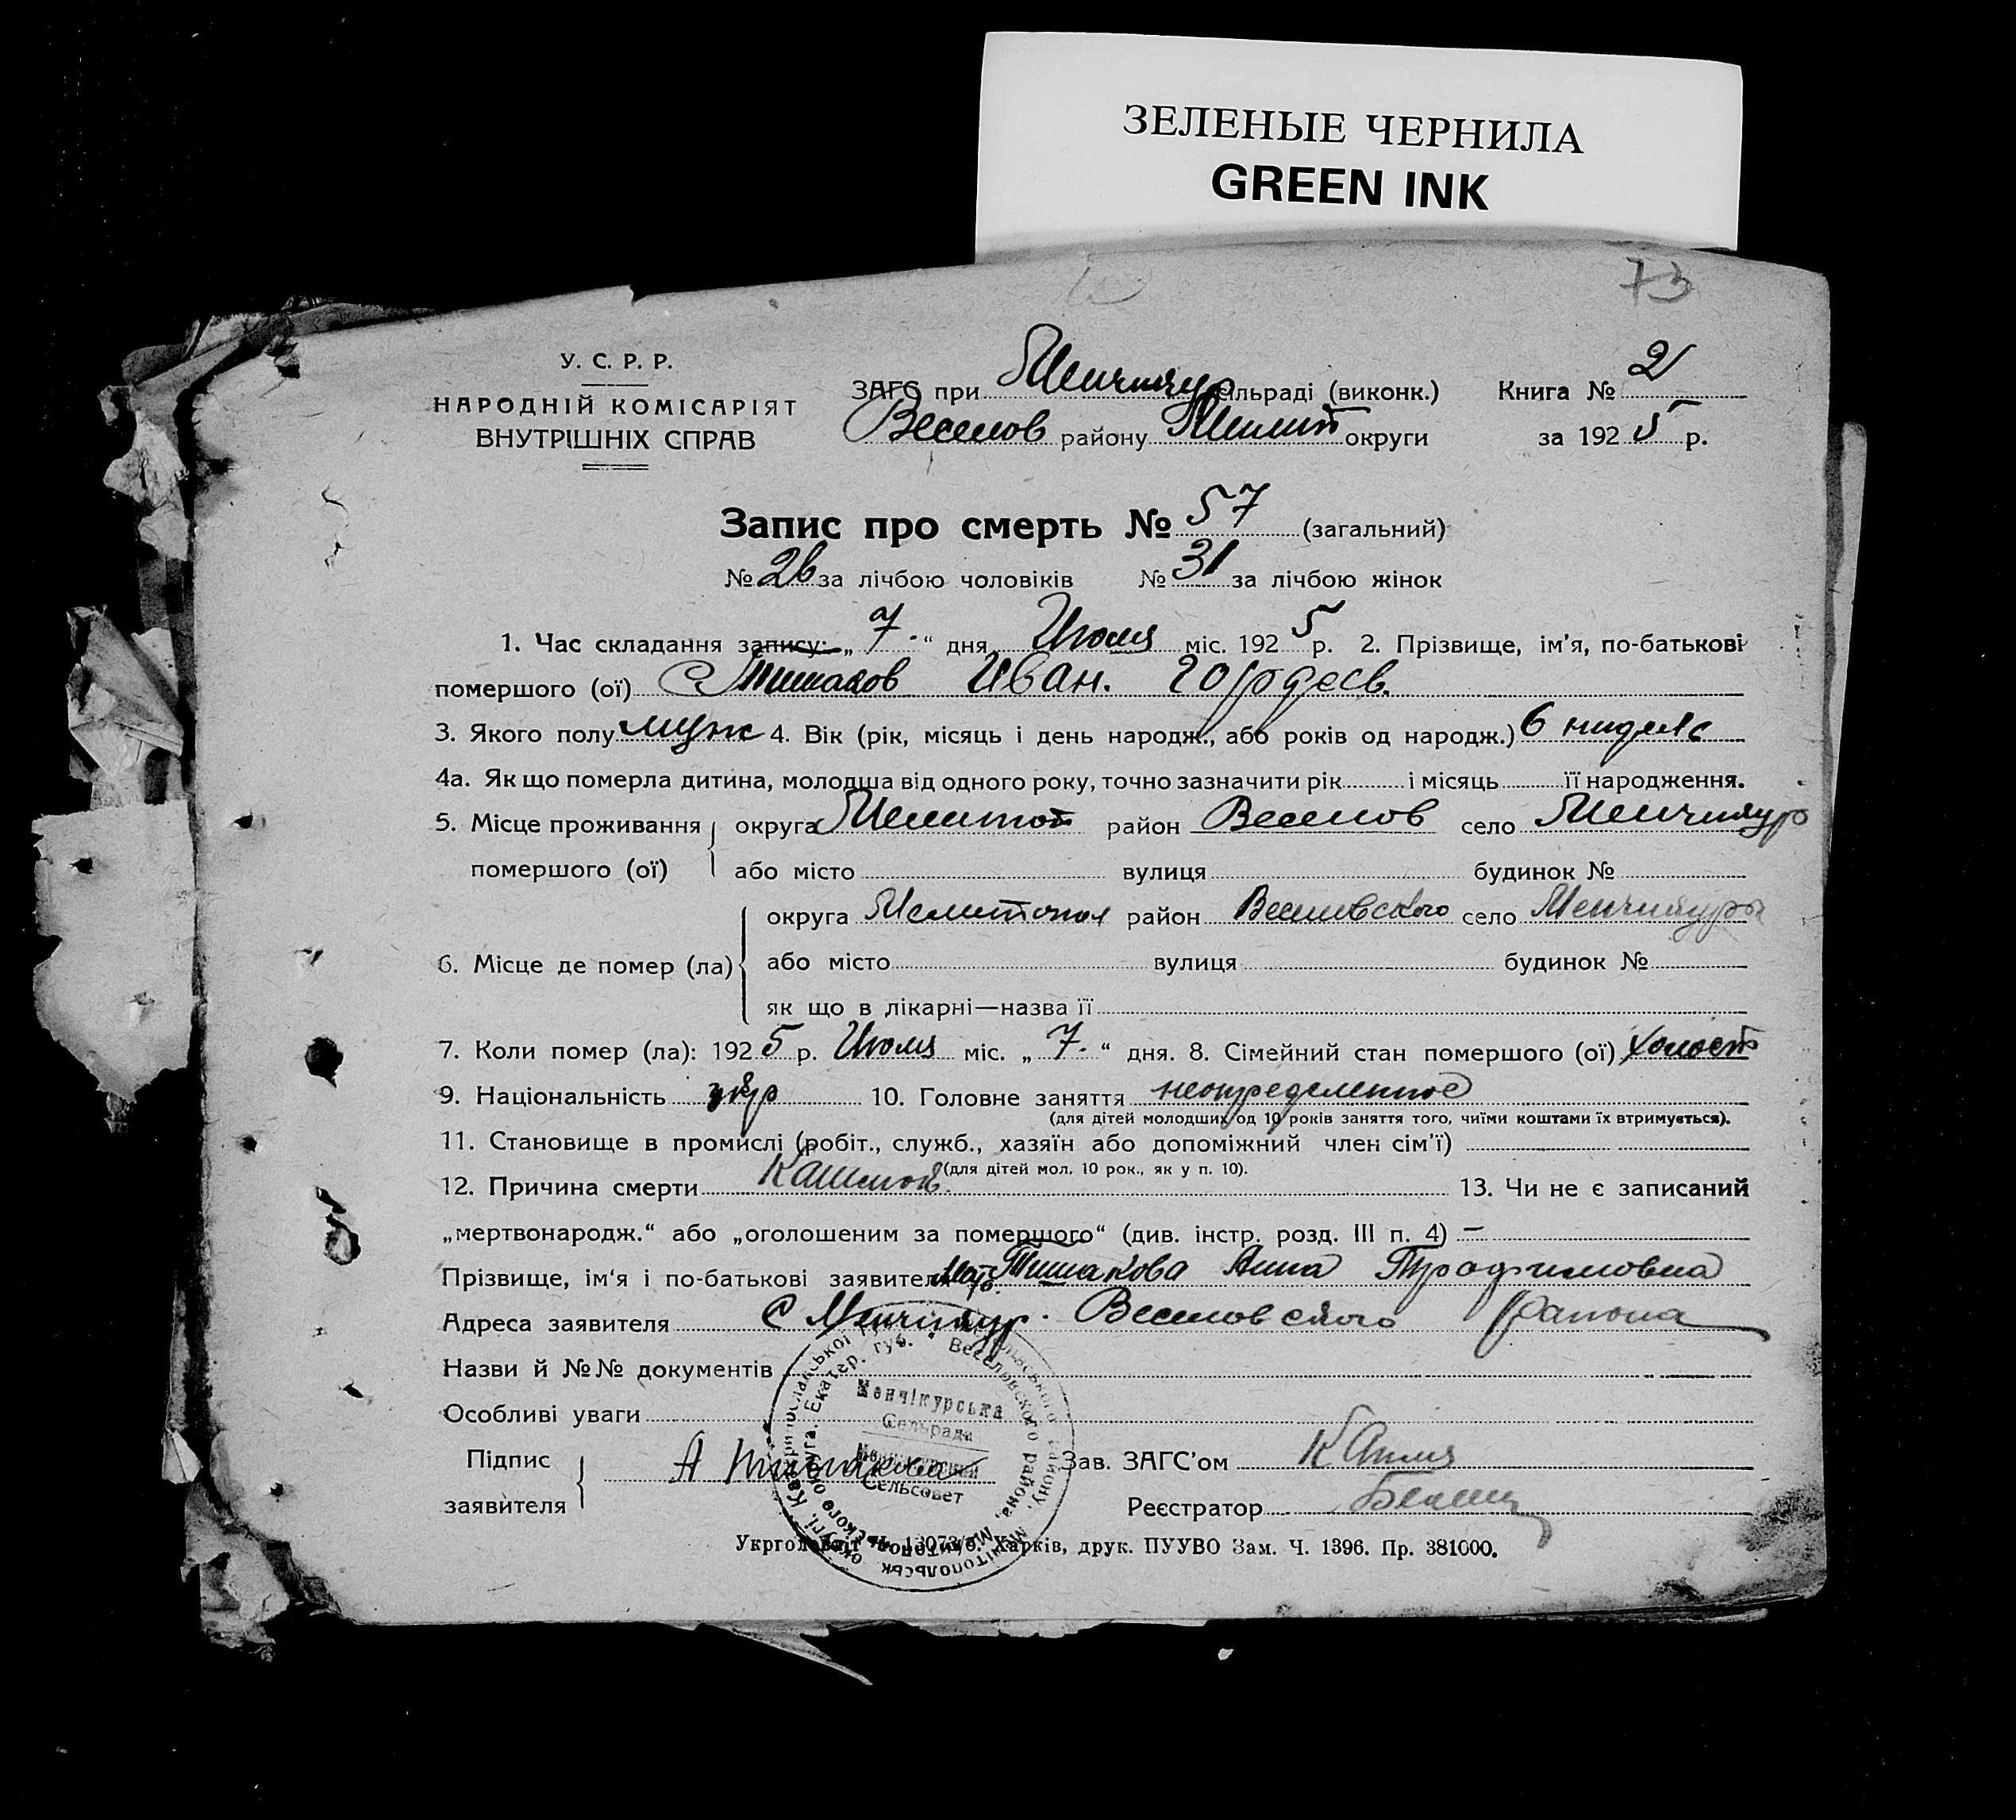 ЗЕЛЕНЫЕ ЧЕРНИЛА
GREEN INK
73
У. С. Р. Р.
НАРОДНІЙ КОМІСАРІЯТ
ВНУТРІШНІХ СПРАВ
ЗАГС при Менчикур сільраді (виконк.) Книга № 2
Веселов району Мелит округи за 1925 р.
Запис про смерть № 57 (загальний)
№ 26 за лічбою чоловіків № 31 за лічбою жінок
1. Час складання запису: „7“ дня Июля міс. 1925 р. 2. Прізвище, ім'я, по-батькові
помершого (ої) Тишаков Иван. Гордеев.
3. Якого полу муж 4. Вік (рік, місяць і день народж., або років од народж.) 6 нидель
4а. Як що померла дитина, молодша від одного року, точно зазначити рік і місяць її народження.
5. Місце проживання округа Мелитоп район Веселов село Менчикур
помершого (ої) або місто вулиця будинок №
округа Мелитопол район Веселовского село Менчикуры
6. Місце де помер (ла) або місто вулиця будинок №
як що в лікарні—назва її
7. Коли помер (ла): 1925 р. Июля міс. „7.“ дня. 8. Сімейний стан помершого (ої) холост
9. Національність укр 10. Головне заняття неопределенное
(для дітей молодших од 10 років заняття того, чиїми коштами їх втримується).
11. Становище в промислі (робіт., служб., хазяїн або допоміжний член сім'ї)
(для дітей мол. 10 рок., як у п. 10).
12. Причина смерти Кашлюк. 13. Чи не є записаний
„мертвонародж.“ або „оголошеним за помершого“ (див. інстр. розд. III п. 4) —
Прізвище, ім'я і по-батькові заявителя Тишакова Анна Трофимовна
Адреса заявителя с Менчикур. Веселовского района
Назви й №№ документів
Особливі уваги
Менчікурська
Сельрада
Менчикурский
Сельсовет
Підпис
заявителя А Тишакова
Зав. ЗАГС'ом
Реєстратор
Харків, друк. ПУУВО Зам. Ч. 1396. Пр. 381000.